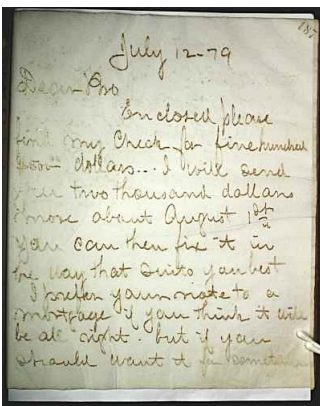 187
July 12-79
Dear Bro
Enclosed please
find my Check for five hundred
dollars... I will send
two thousand dollars
more about August 1st
you can then fix it in
the way that suits you best
I prefer your note to a
mortgage if you think it will
be all right - but if you
should want it for